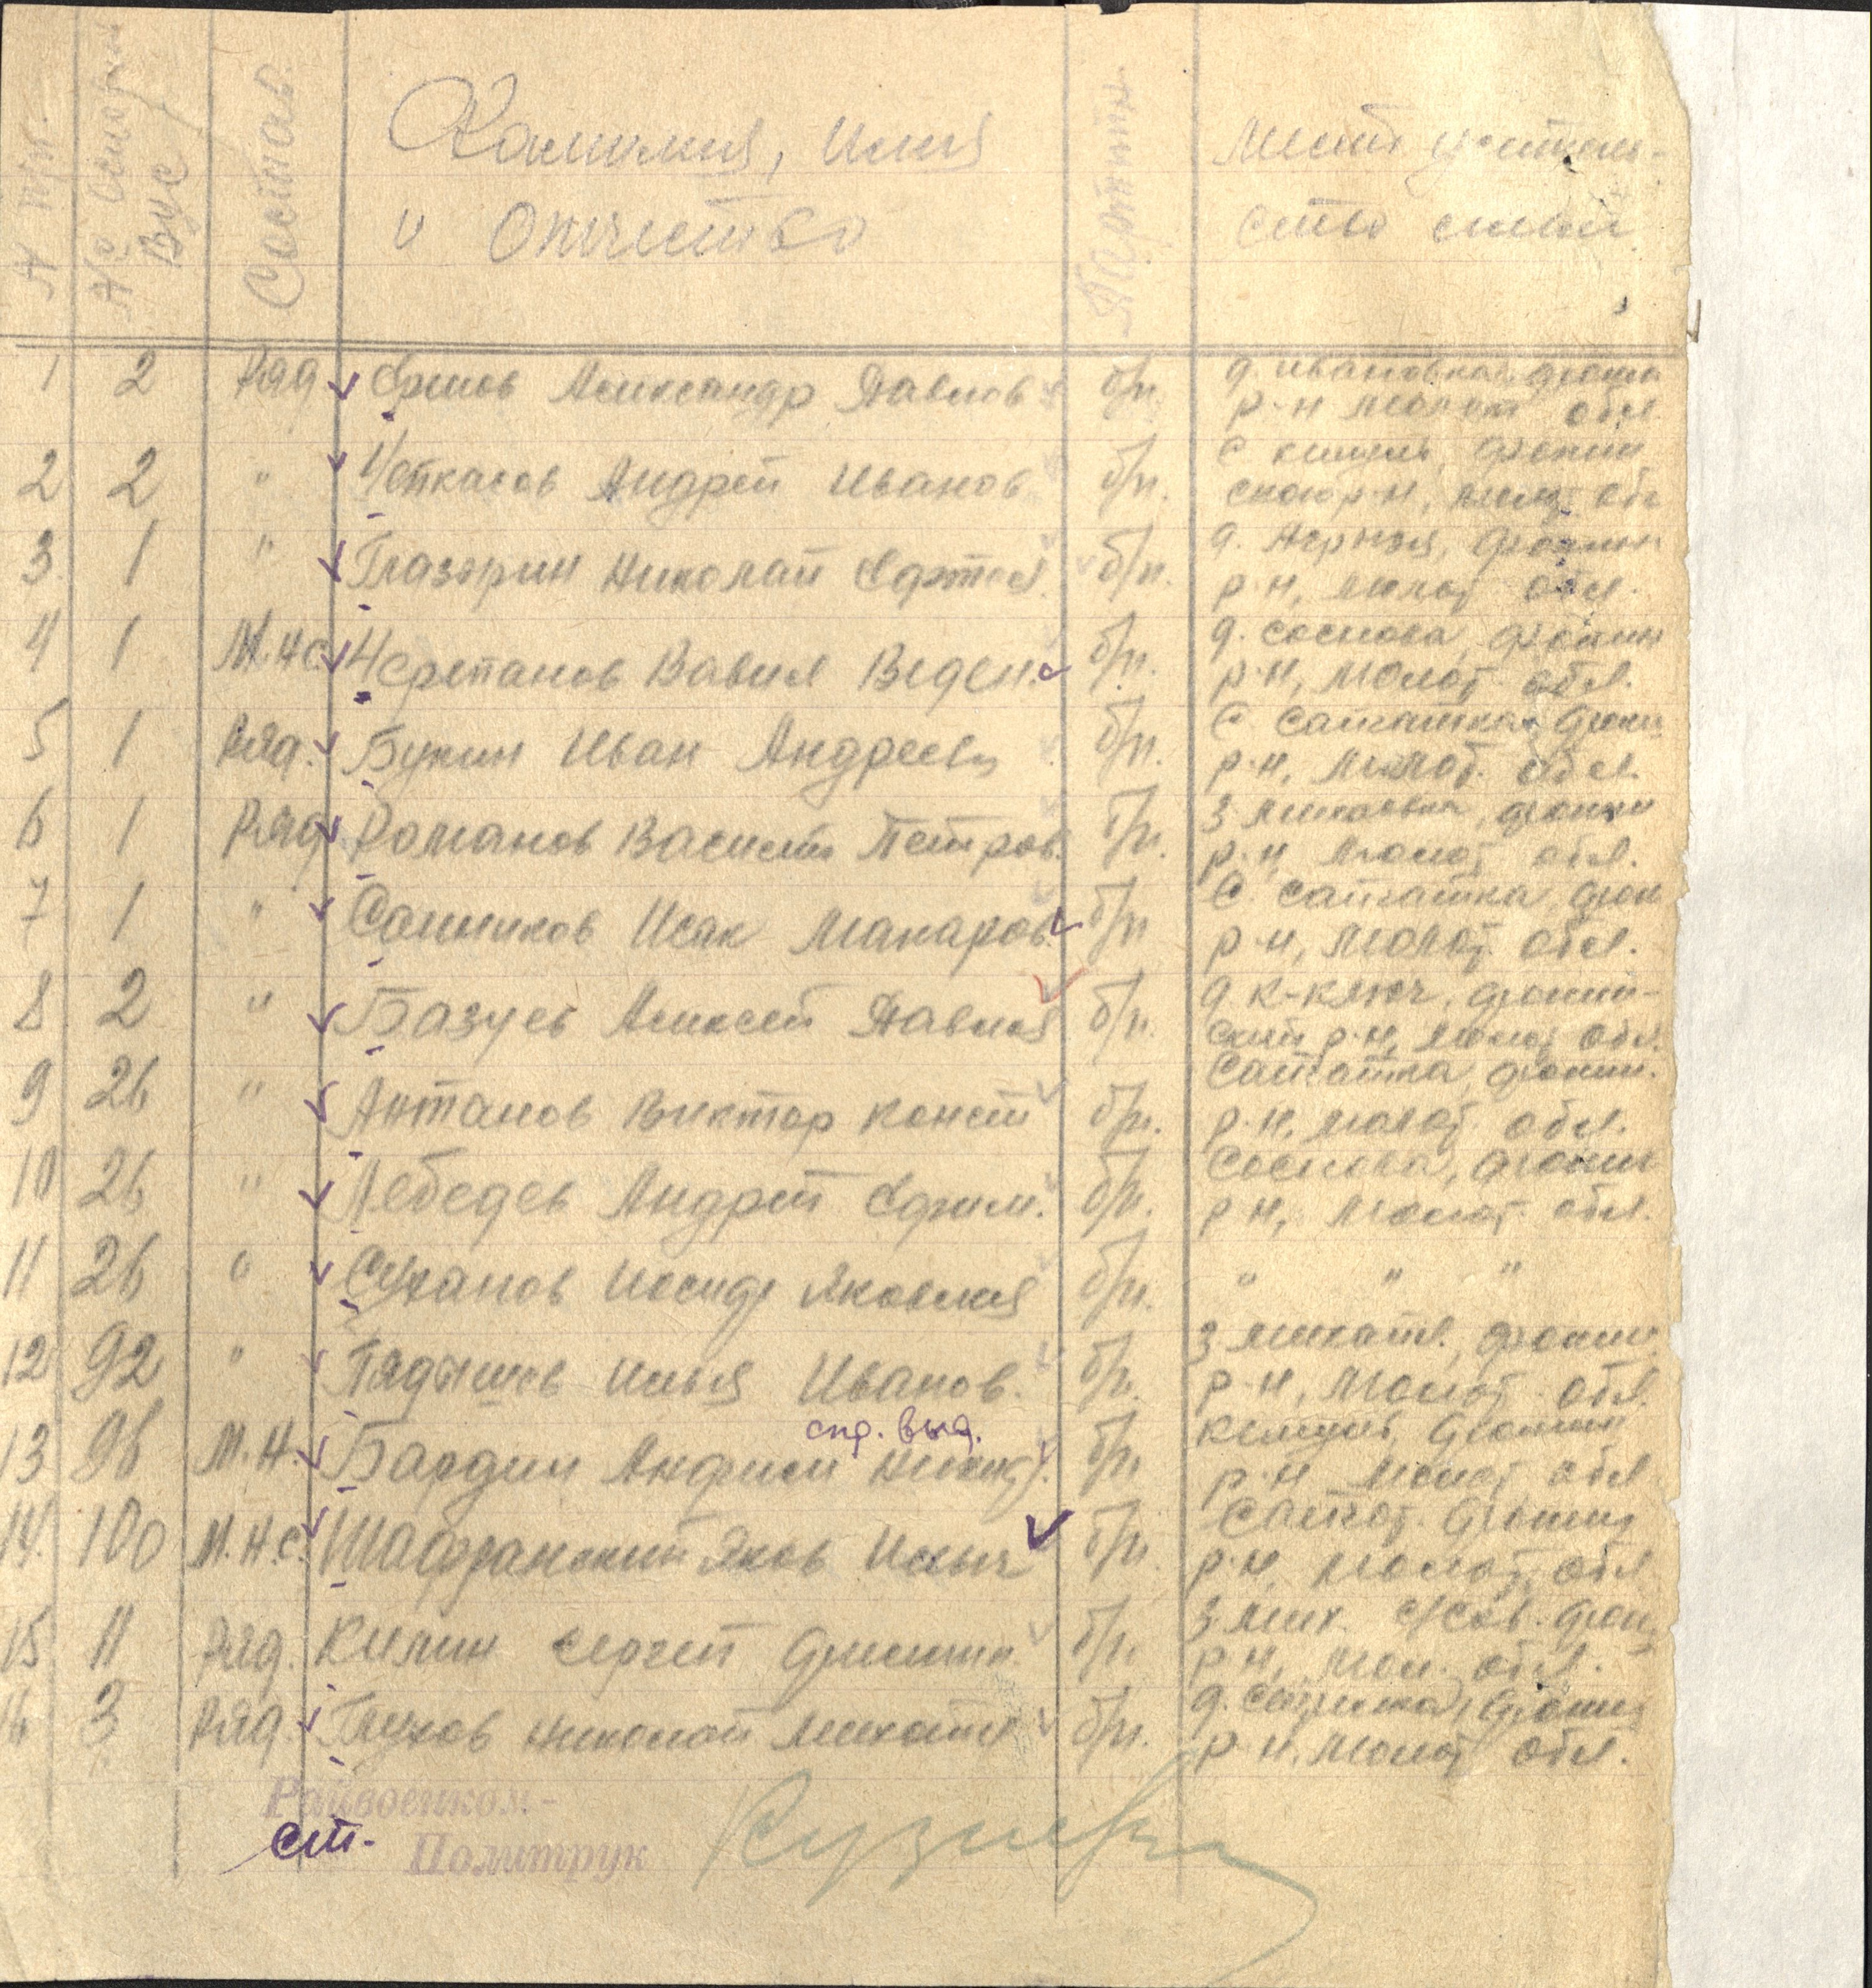 N п/п.
№ Осмотра ВУС
Состав
Фамилия, Имя
и Отчество
Партия
Место жительство семьи
1 2 Ряд Ершов Александр Павлов б/п. д. Ивановка
р-н Молот обл.
2 2 " Чепкасов Андрей Иванов б/п.
ского р-н, Молот обл
3 1 " Глазырин Николай б/п.
р-н, Молот обл.
4 1 М.Н.С. Черепанов Вавил Веден. б/п. д. Соснова, Фокин
р-н, Молот. обл.
5 1 Ряд. Букин Иван Андрееви б/п. с. Сайгатка, Фоки
р-н, Молот. обл.
6 1 Ряд Романов Василий Петров. б/п. З Михайловка, Фокин
р-н, Молот обл.
7 1 " Санников Исак Макаров. б/п с. Сайгатка, Фок
р-н, Молот. обл.
8 2 " Базуев Алексей Павлов б/п. д. К-Ключ, Фокин-
ский р-н, Молот обл.
9 26 " Антанов Виктор Конст б/п. Сайгатка, Фокин.
р-н, Молот. обл.
10 26 " Лебедев Андрей Ефим. б/п. Соснова, Фокин
р-н, Молот. обл.
11 26 " Суханов Иосиф Яковлев б/п. " " "
12 92 " Пядышев Илья Иванов. б/п. З Михайл., Фокин.
р-н, Молот. обл.
спр. выд.
13 98 М.Н. Бардин Анфим Никиф. б/п Кемуль, Фокин
р-н Молот. обл
14. 100 М.Н.С. Шафранский Яков Ильич б/п Сайгат. Фокин
р-н, Молот. обл
15 11 Ряд. Килин Сергей б/п. З Мих. с/сов. Фок
р-н, Мол. обл.
16 3 Ряд. Глухов Николай Михайл б/п. Фокин
р-н, Молот обл.
Райвоенком-
ст. Политрук